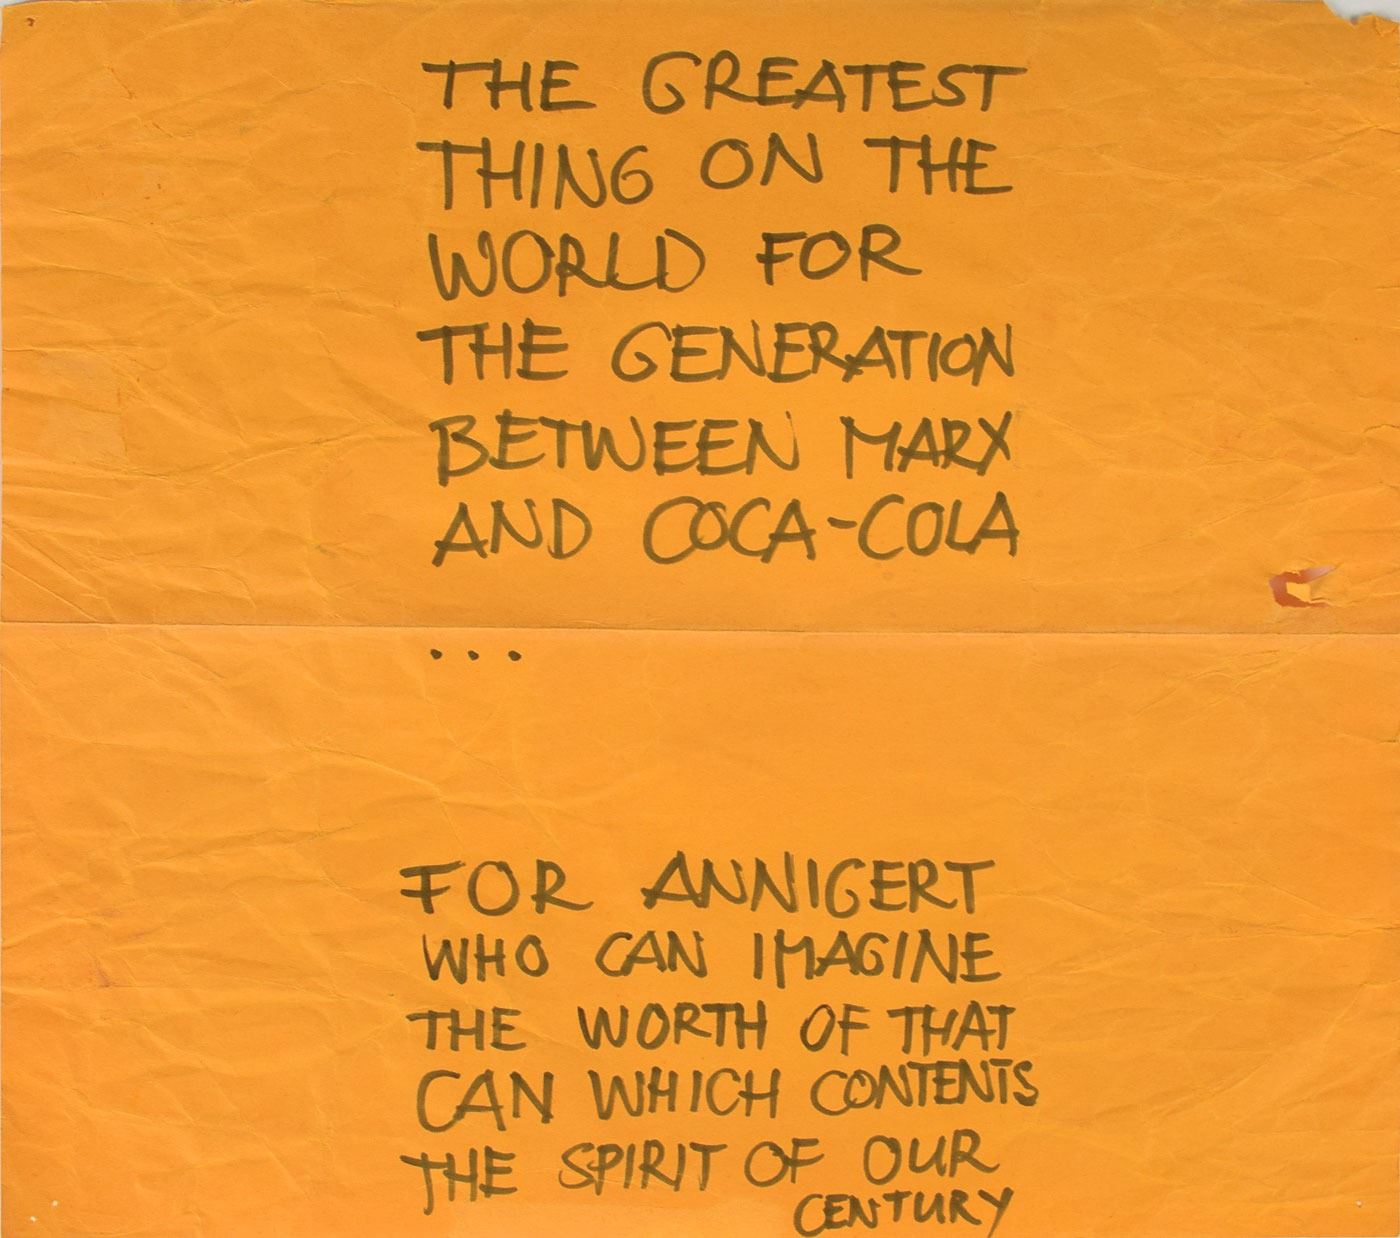 THE GREATEST
THING ON THE
WORLD FOR
THE GENERATION
BETWEEN MARX
AND COCA-COLA
...
FOR ANNIGERT
WHO CAN IMAGINE
THE WORTH OF THAT
CAN WHICH CONTENTS
THE SPIRIT OF OUR
CENTURY